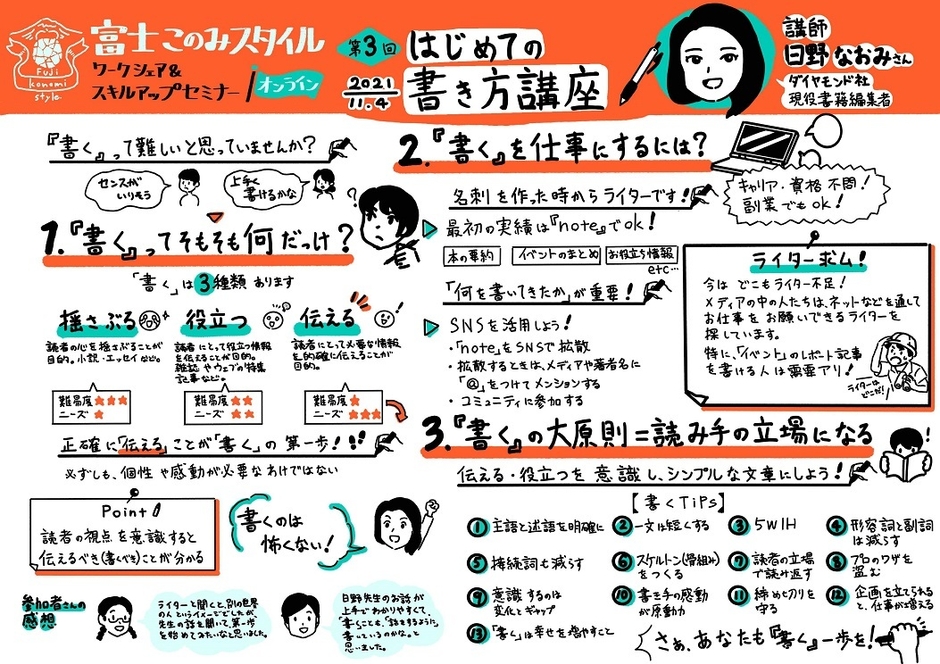 FUJI
konomi
style
富士このみスタイル
ワークシェア&
スキルアップセミナー
オンライン
第3回
2021
11.4
はじめての
書き方講座
講師
日野なおみさん
ダイヤモンド社
現役書籍編集者
『書く』って難しいと思っていませんか?
センスが
いりそう
上手く
書けるかな
1.『書く』ってそもそも何だっけ?
「書く」は3種類あります
揺さぶる
読者の心を揺さぶることが
目的。小説・エッセイなど。
難易度★★★
ニーズ ★
役立つ
読者にとって役立つ情報
を伝えることが目的。
雑誌やウェブの特集
記事など。
難易度★★
ニーズ ★★
伝える
読者にとって必要な情報
を的確に伝えることが
目的。
難易度★
ニーズ★★★
正確に「伝える」ことが「書く」の第一歩!!
必ずしも、個性や感動が必要なわけではない
Point!
読者の視点を意識すると
伝えるべき(書くべき)ことが分かる
書くのは
怖くない!
参加者さんの
感想
ライターと聞くと、別の世界
の人というイメージでしたが
先生の話を聞いて、第一歩
を始めてみたいなと思いました。
日野先生のお話が
上手でわかりやすくて、
「書くことも、「話をするように」
書いているのかな。と
思いました。
2.『書く』を仕事にするには?
キャリア・資格不問!
副業でもOK!
名刺を作った時からライターです!
最初の実績は『note』でOK!
本の要約
イベントのまとめ
お役立ち情報
etc…
「何を書いてきたか」が重要!
SNSを活用しよう!
・「note」をSNSで拡散
・拡散するときは、メディアや著者名に
「@」をつけてメンションする
・コミュニティに参加する
ライター求ム!
今はどこもライター不足!
メディアの中の人たちは、ネットなどを通して
お仕事をお願いできるライターを
探しています。
特に、「イベント」のレポート記事
を書ける人は需要アリ!
ライターは
どこだ!
3.『書く』の大原則=読み手の立場になる
伝える・役立つを意識し、シンプルな文章にしよう!
【書くTiPs】
① 主語と述語を明確に
② 一文は短くする
③ 5W1H
④ 形容詞と副詞
は減らす
⑤ 接続詞も減らす
⑥ スケルトン(骨組み)
をつくる
⑦ 読者の立場
で読み返す
⑧ プロのワザを
盗む
⑨ 意識するのは
変化とギャップ
⑩ 書き手の感動
が原動力
⑪ 締め切りを
守る
⑫ 企画を立てられる
と、仕事が増える
⑬ 「書く」は幸せを増やすこと
さぁ、あなたも『書く』一歩を!